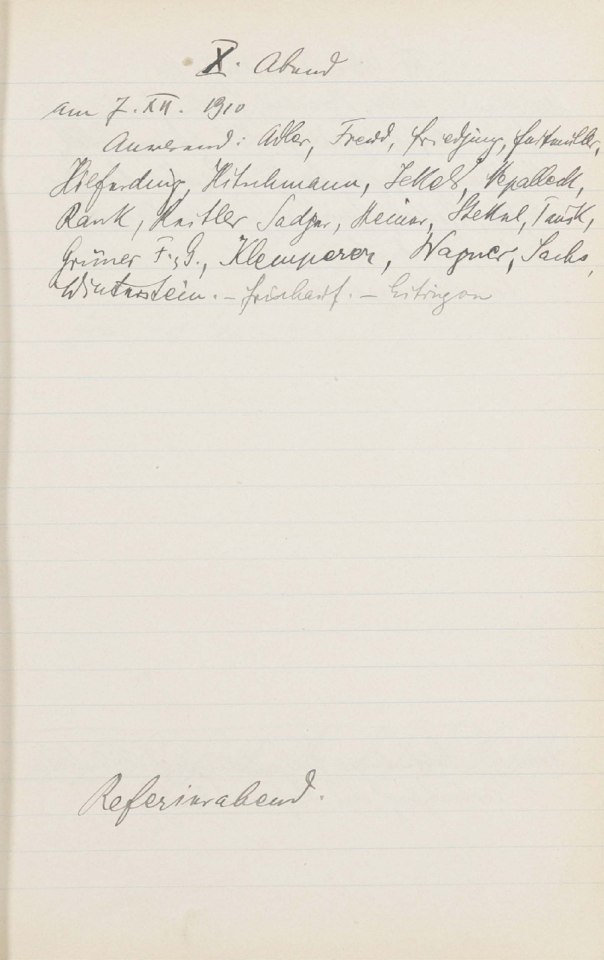 X. Abend
am 7. XII. 1910
Anwesend: Adler, Freud, Friedjung, Furtmüller,
Hilferding, Hitschmann, Jekels, Oppolzer,
Rank, Reitler, Sadger, Steiner, Stekel, Tausk,
Grüner F., G., Klemperer, Wagner, Sachs,
Winterstein. – Frischauf. – Eitingon
Referierabend.